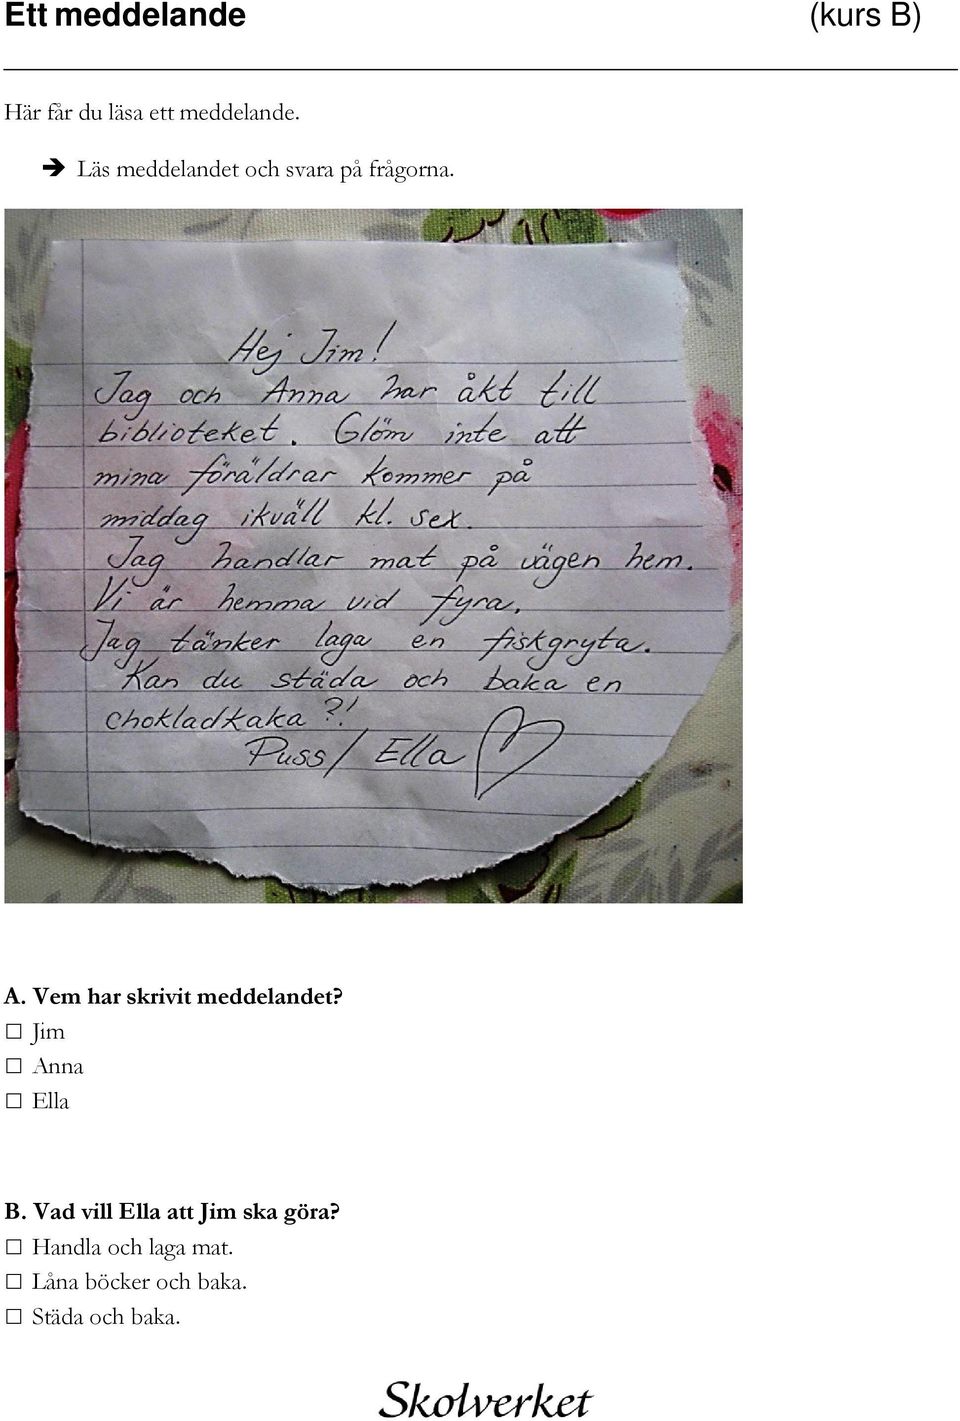 Ett meddelande (kurs B)
Här får du läsa ett meddelande.
➔ Läs meddelandet och svara på frågorna.
Hej Jim!
Jag och Anna har åkt till
biblioteket. Glöm inte att
mina föräldrar kommer på
middag ikväll kl. sex.
Jag handlar mat på vägen hem.
Vi är hemma vid fyra.
Jag tänker laga en fiskgryta.
Kan du städa och baka en
chokladkaka?!
Puss/ Ella ♡
A. Vem har skrivit meddelandet?
□ Jim
□ Anna
□ Ella
B. Vad vill Ella att Jim ska göra?
□ Handla och laga mat.
□ Låna böcker och baka.
□ Städa och baka.
Skolverket